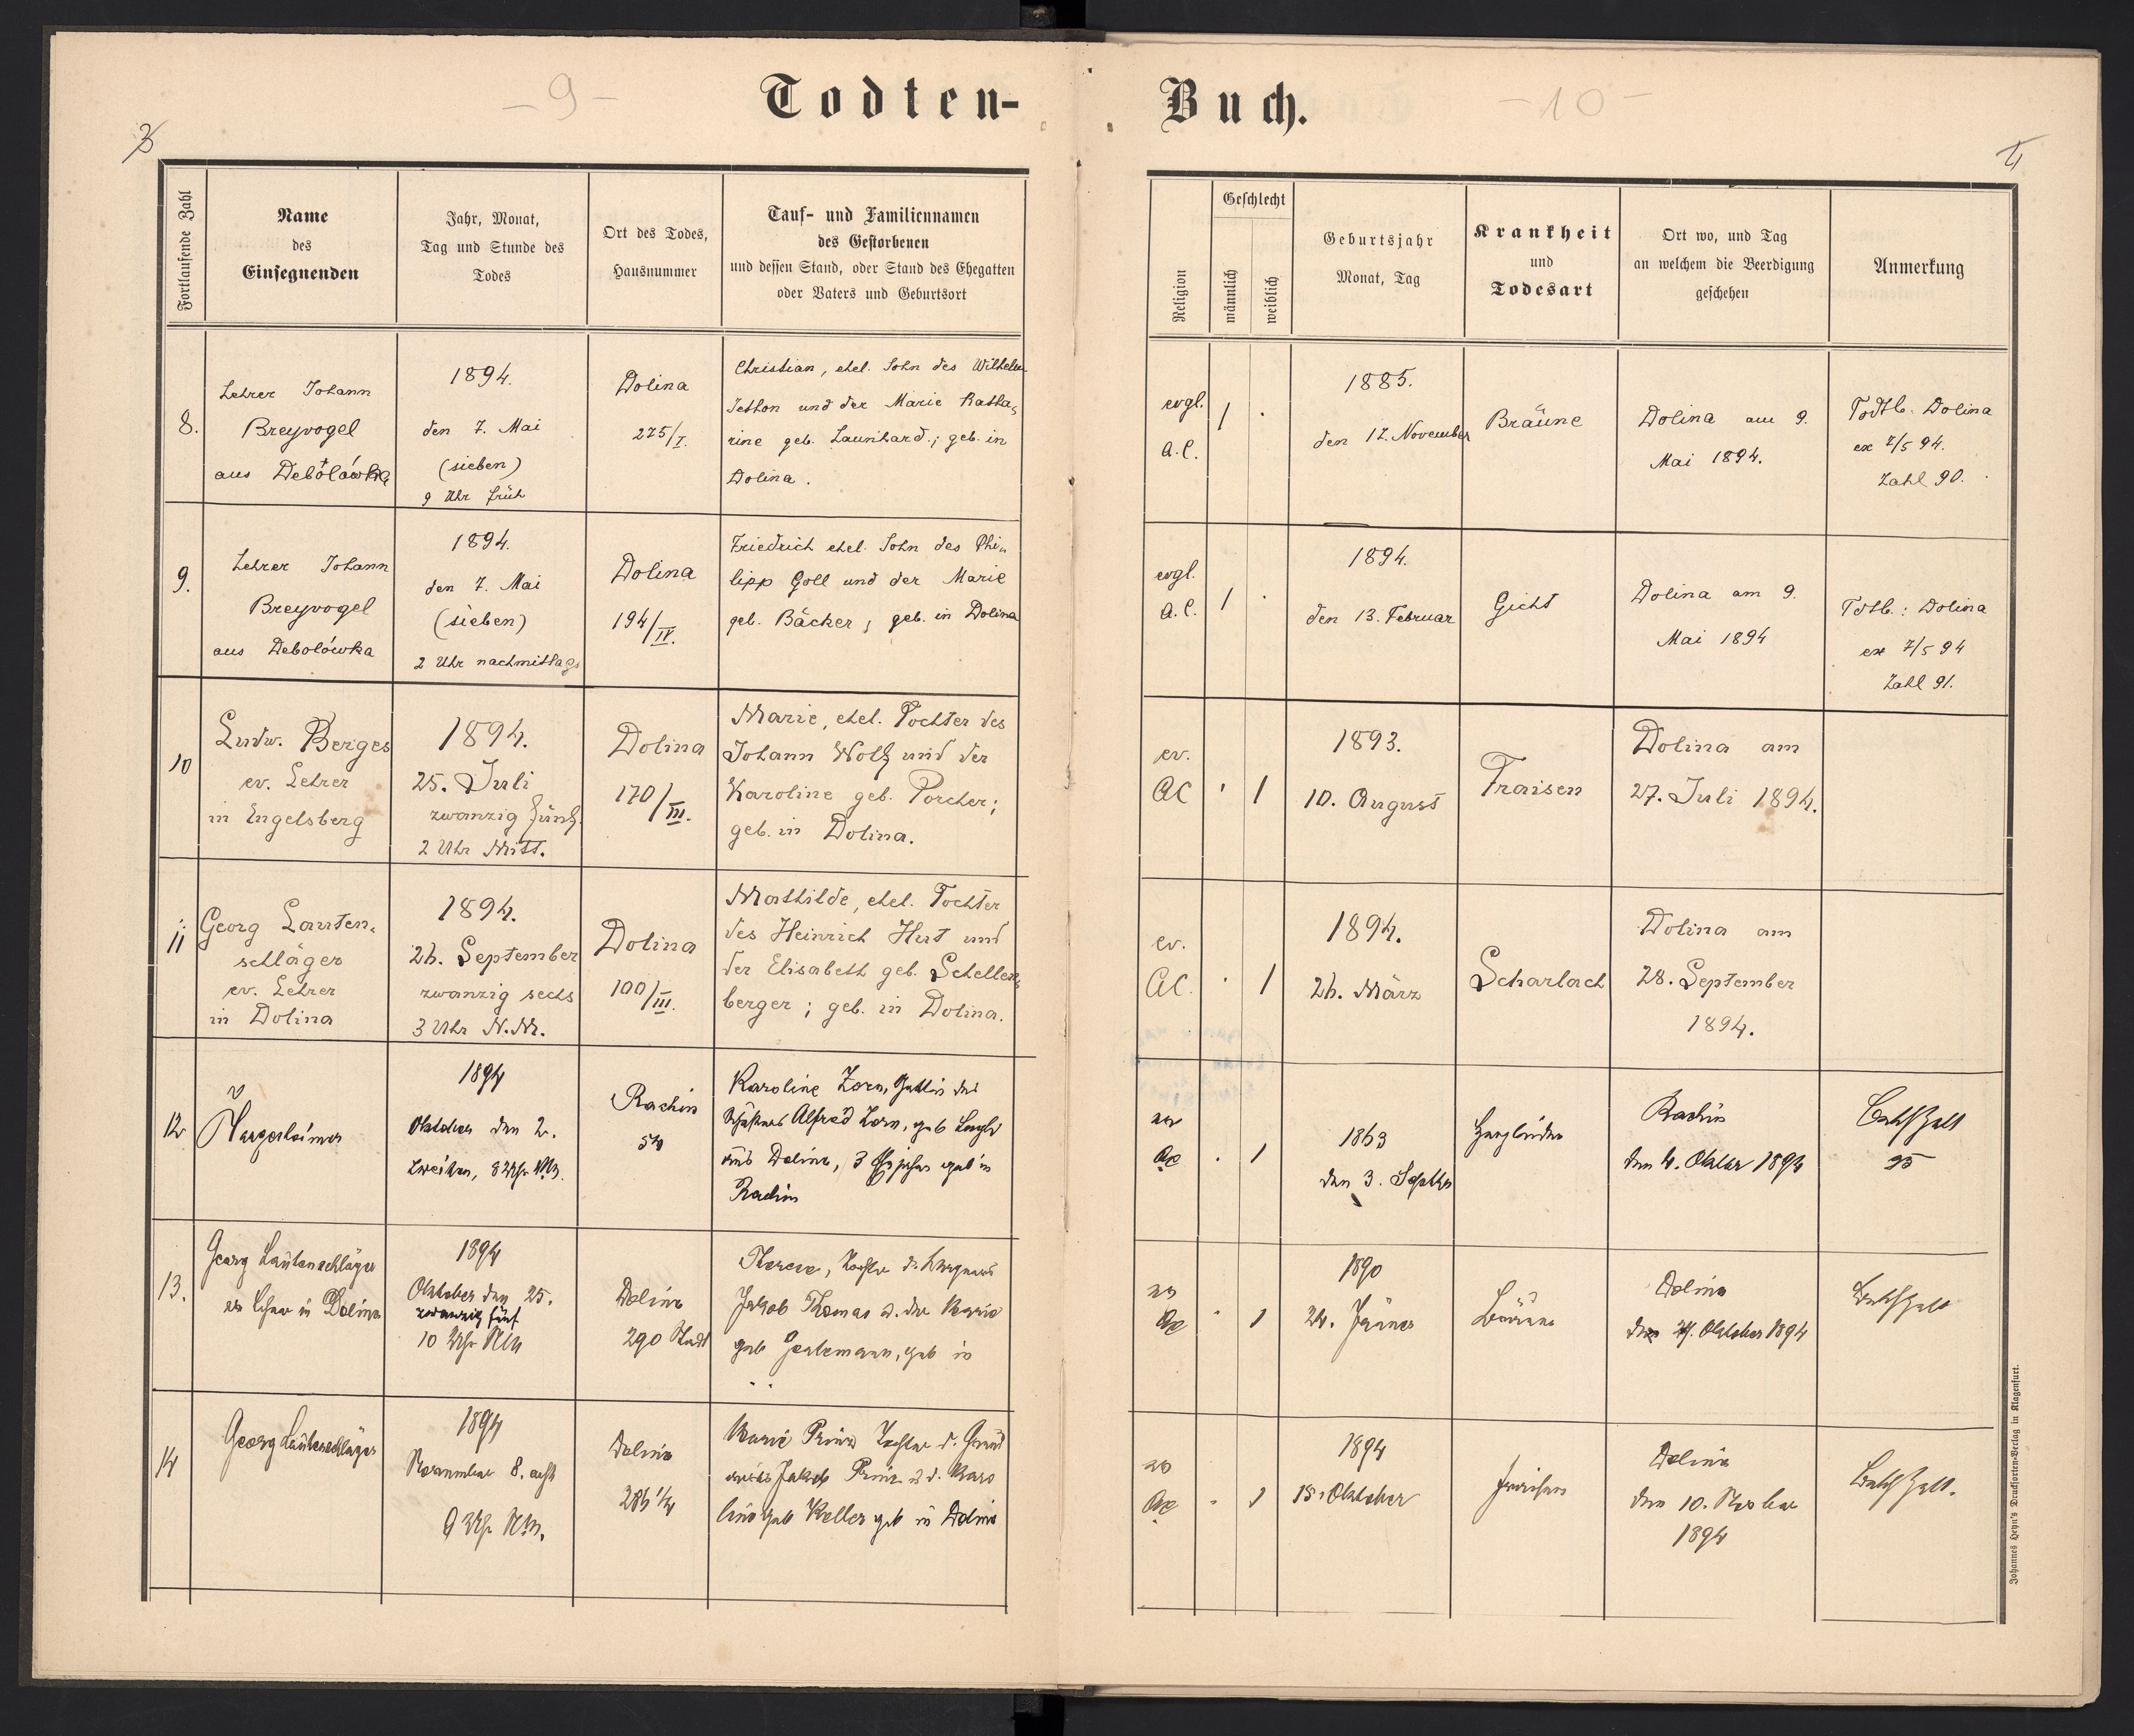 - 9 -
Todten-
3
Fortlaufende Zahl
Name
des
Einsegnenden
Jahr, Monat,
Tag und Stunde des
Todes
Ort des Todes,
Hausnummer
Tauf- und Familiennamen
des Gestorbenen
und dessen Stand, oder Stand des Ehegatten
oder Vaters und Geburtsort
8.
Lehrer Johann
Breyvogel
aus Debolówka
1894.
den 7. Mai
(sieben)
9 Uhr früh
Dolina
275/I.
Christian, ehel. Sohn des Wilhelm
Jethon und der Marie Katha-
rine geb. Launhard; geb. in
Dolina.
9.
Lehrer Johann
Breyvogel
aus Debolówka
1894.
den 7. Mai
(sieben)
2 Uhr nachmittags
Dolina
194/IV.
Friedrich ehel. Sohn des Phi-
lipp Goll und der Marie
geb. Bäcker, geb. in Dolina
10
Ludw. Berges
ev. Lehrer
in Engelsberg
1894.
25. Juli
zwanzig fünf.
2 Uhr Mitt.
Dolina
170/III.
Marie, ehel. Tochter des
Johann Wolf und der
Karoline geb. Porcher;
geb. in Dolina.
11
Georg Lauten-
schläger
ev. Lehrer
in Dolina
1894.
26. September
zwanzig sechs
3 Uhr N.M.
Dolina
100/III.
Mathilde, ehel. Tochter
des Heinrich Hut und
der Elisabeth geb. Schellen-
berger; geb. in Dolina.
12
1894
Oktober den 2.
zweiten, 8 Uhr
Rachin
Karoline Zorn, Gattin des
Alfred Zorn, geb
aus Dolina, geb in
Rachin
13.
Georg Lautenschläger
ev Lehrer in Dolina
1894
Oktober den 25.
zwanzig fünf
10 Uhr
Dolina
290 Stadt
Tochter
Jakob Thomas u. der Marie
geb in
14
Georg Lautenschläger
1894
November 8. acht
9 Uhr N.M.
Dolina
Marie Prinz Tochter d.
Jakob Prinz u d. Karo
line geb Keller geb in Dolina
Buch.
- 10 -
4
Religion
Geschlecht
männlich
weiblich
Geburtsjahr
Monat, Tag
Krankheit
und
Todesart
Ort wo, und Tag
an welchem die Beerdigung
geschehen
Anmerkung
evgl.
A.C.
1 .
1885.
den 17. November
Bräune
Dolina am 9.
Mai 1894.
Todtb. Dolina
ex 7/5 94.
Zahl 90.
evgl.
A.C.
1 .
1894.
den 13. Februar
Gicht
Dolina am 9.
Mai 1894
Todtb.: Dolina
ex 7/5 94
Zahl 91.
ev.
AC
. 1
1893.
10. August
Fraisen
Dolina am
27. Juli 1894.
ev.
AC.
. 1
1894.
26. März
Scharlach
Dolina am
28. September
1894.
ev
AC
. 1
1863
den 3. Septber
Rachin
den 4. Oktober 1894
ev
AC
. 1
1890
24. Jänner
Bräune
Dolina
den 27. Oktober 1894
ev
AC
. 1
1894
15. Oktober
Fraisen
Dolina
den 10. November
1894
Johannes Heyn's Drucksorten-Verlag in Klagenfurt.